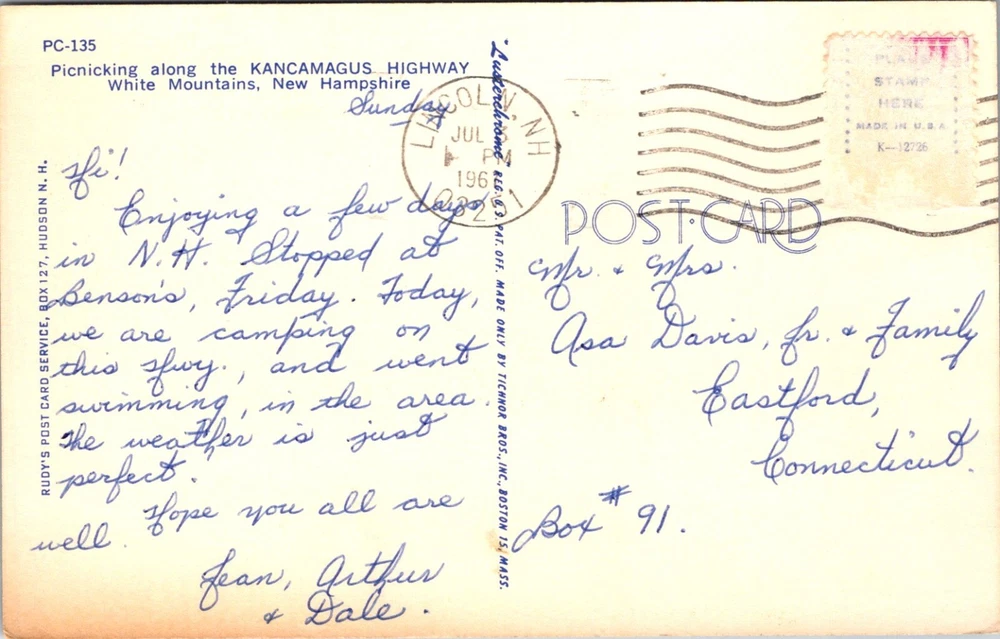 PC-135
Picnicking along the KANCAMAGUS HIGHWAY
White Mountains, New Hampshire
Sunday
Hi!
Enjoying a few days
in N.H. Stopped at
Benson's, Friday. Today,
we are camping on
this Hwy., and went
swimming, in the area.
The weather is just
perfect.
Hope you all are
well.
Jean, Arthur
& Dale.
RUDY'S POST CARD SERVICE, BOX 127, HUDSON N. H.
"Lusterchrome" REG. U.S. PAT. OFF. MADE ONLY BY TICHNOR BROS., INC., BOSTON 15, MASS.
LINCOLN, NH
JUL
PM
196
POST CARD
PLACE
STAMP
HERE
MADE IN U.S.A.
K-12726
Mr. & Mrs.
Asa Davis, Jr. & Family
Eastford,
Connecticut.
Box # 91.